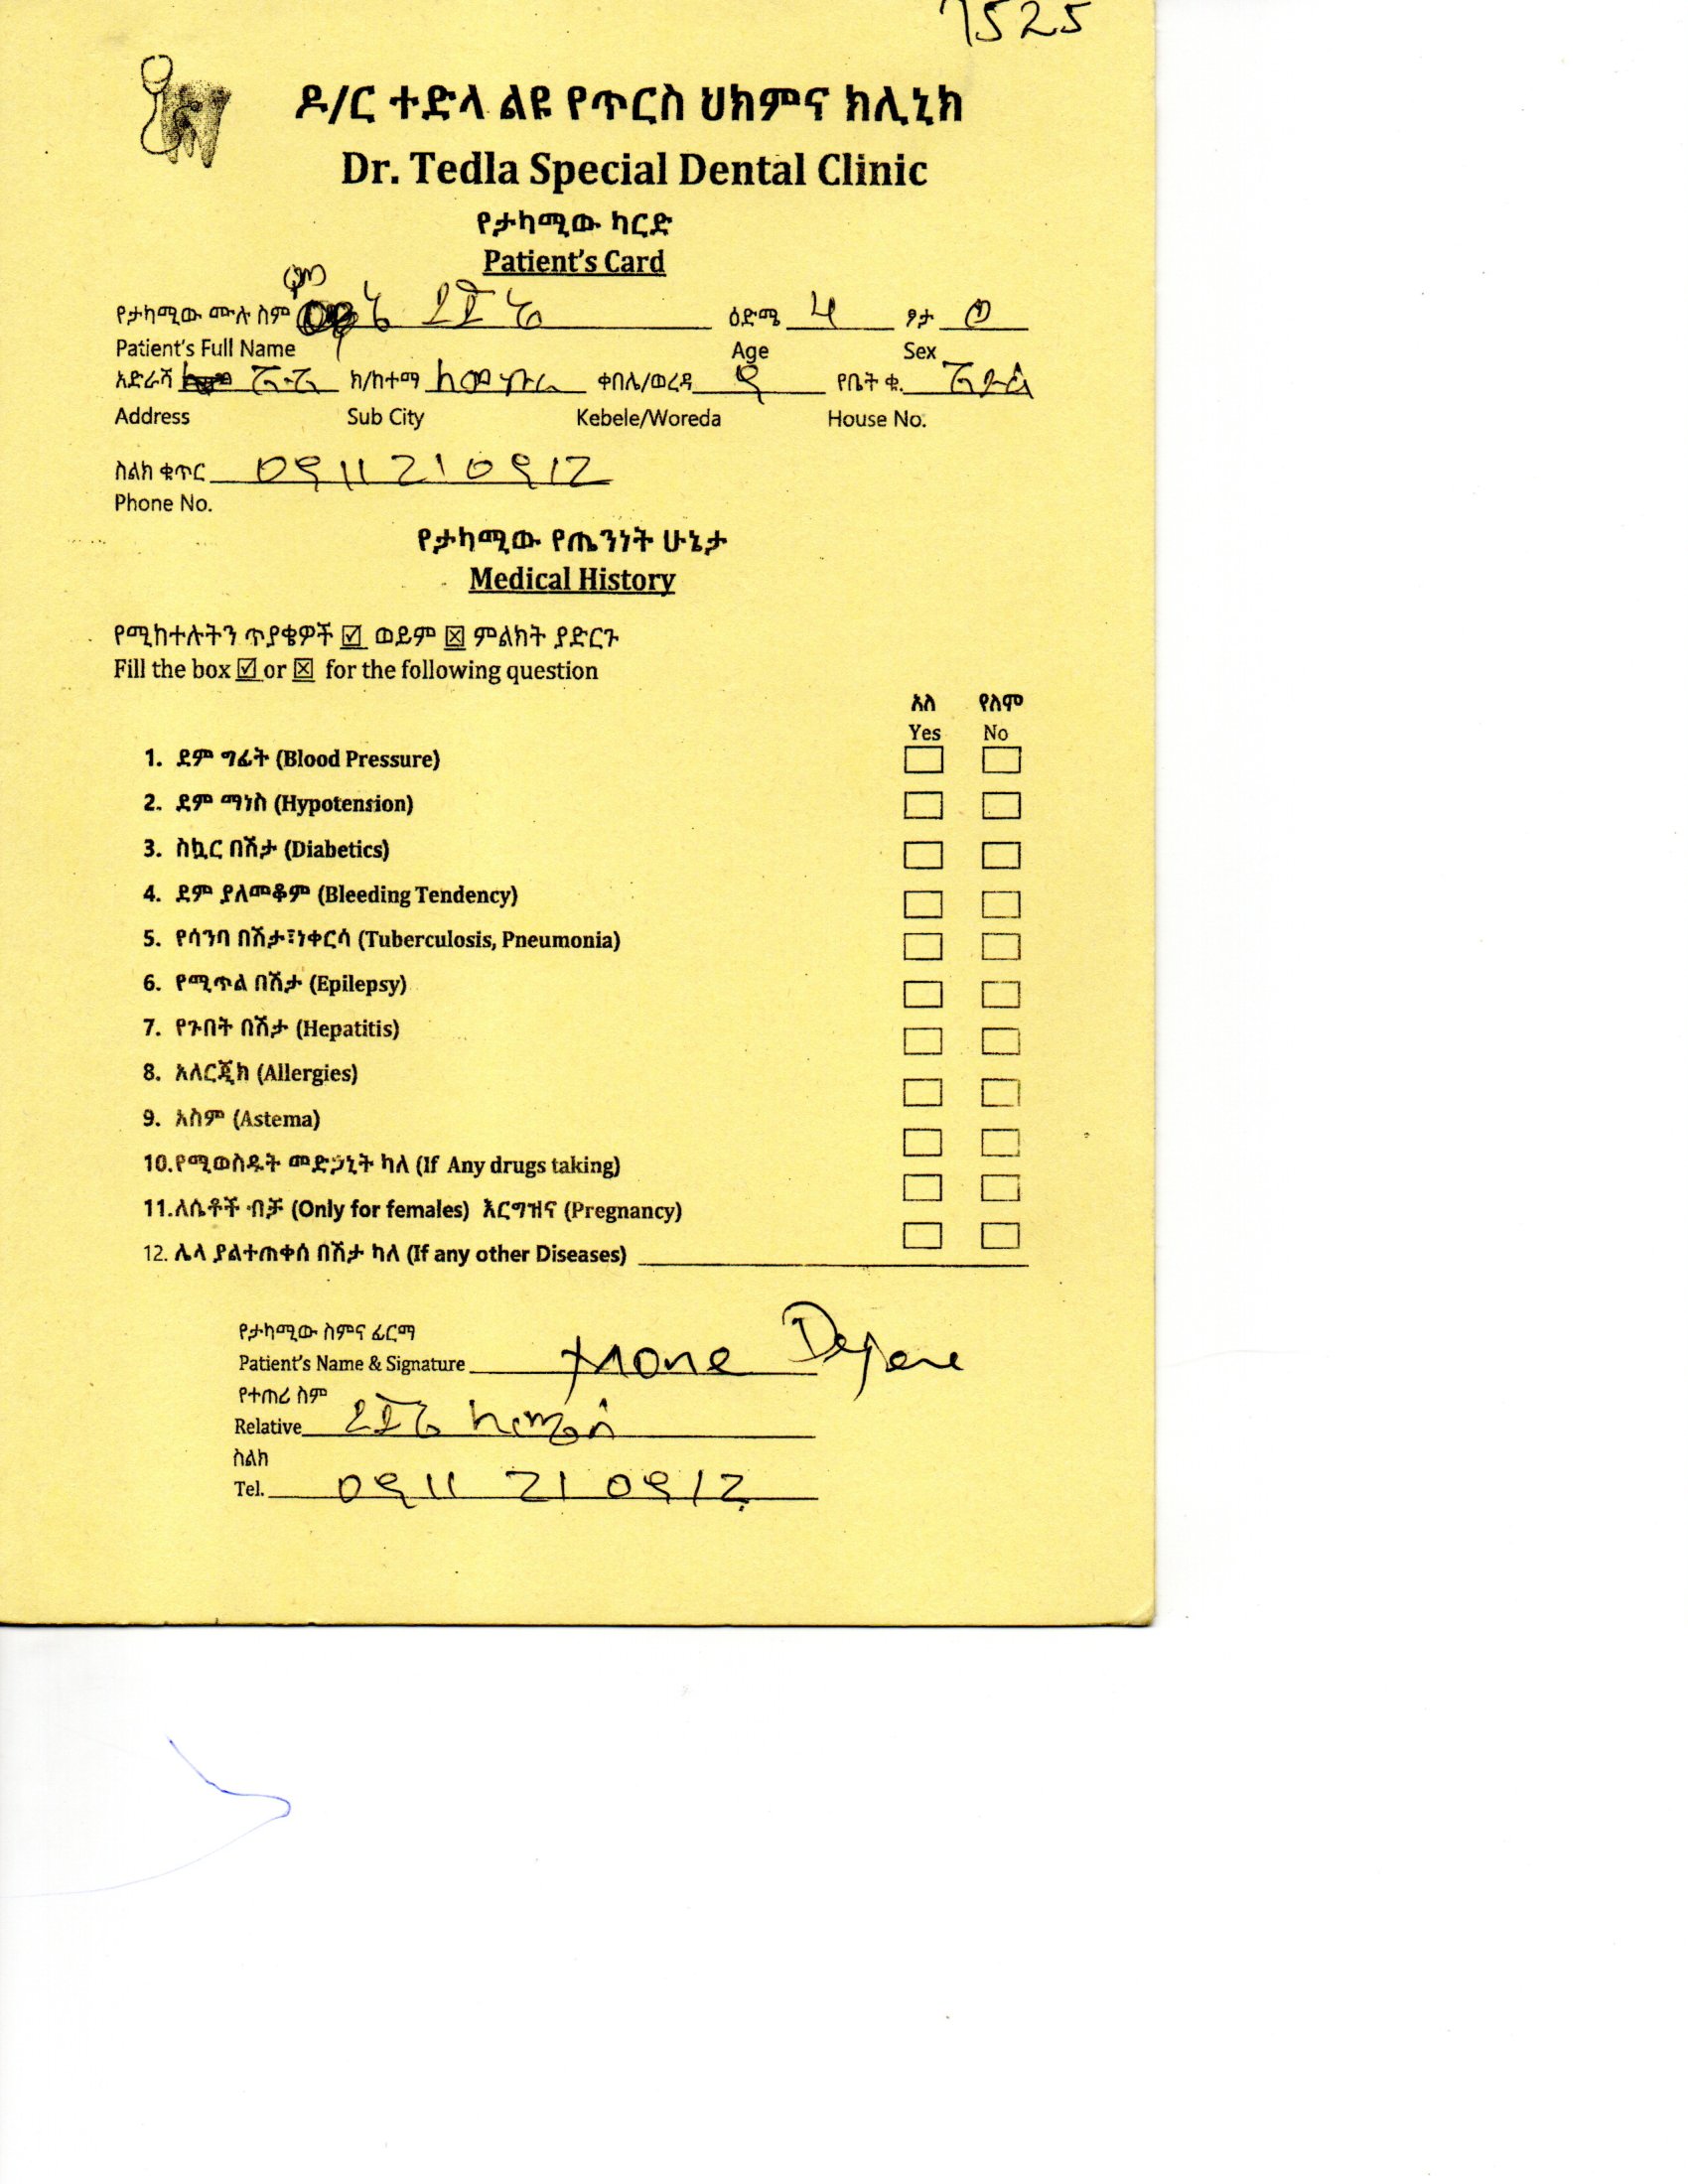 7525
ዶ/ር ተድላ ልዩ የጥርስ ህክምና ክሊኒክ
Dr. Tedla Special Dental Clinic
የታካሚው ካርድ
Patient's Card
የታካሚው ሙሉ ስም ደጀኔ ዕድሜ 4 ፆታ ወ
Patient's Full Name Age Sex
አድራሻ ክ/ከተማ ቀበሌ/ወረዳ 9 የቤት ቁ.
Address Sub City Kebele/Woreda House No.
ስልክ ቁጥር 0911210912
Phone No.
የታካሚው የጤንነት ሁኔታ
Medical History
የሚከተሉትን ጥያቄዎች ☑ ወይም ☒ ምልክት ያድርጉ
Fill the box ☑ or ☒ for the following question
አለ የለም
Yes No
1. ደም ግፊት (Blood Pressure) ☐ ☐
2. ደም ማነስ (Hypotension) ☐ ☐
3. ስኳር በሽታ (Diabetics) ☐ ☐
4. ደም ያለመቆም (Bleeding Tendency) ☐ ☐
5. የሳንባ በሽታ፣ነቀርሳ (Tuberculosis, Pneumonia) ☐ ☐
6. የሚጥል በሽታ (Epilepsy) ☐ ☐
7. የጉበት በሽታ (Hepatitis) ☐ ☐
8. አለርጂክ (Allergies) ☐ ☐
9. አስም (Astema) ☐ ☐
10.የሚወስዱት መድኃኒት ካለ (If Any drugs taking) ☐ ☐
11.ለሴቶች ብቻ (Only for females) እርግዝና (Pregnancy) ☐ ☐
12. ሌላ ያልተጠቀሰ በሽታ ካለ (If any other Diseases)
የታካሚው ስምና ፊርማ
Patient's Name & Signature
የተጠሪ ስም
Relative ደጀኔ
ስልክ
Tel. 0911 210912